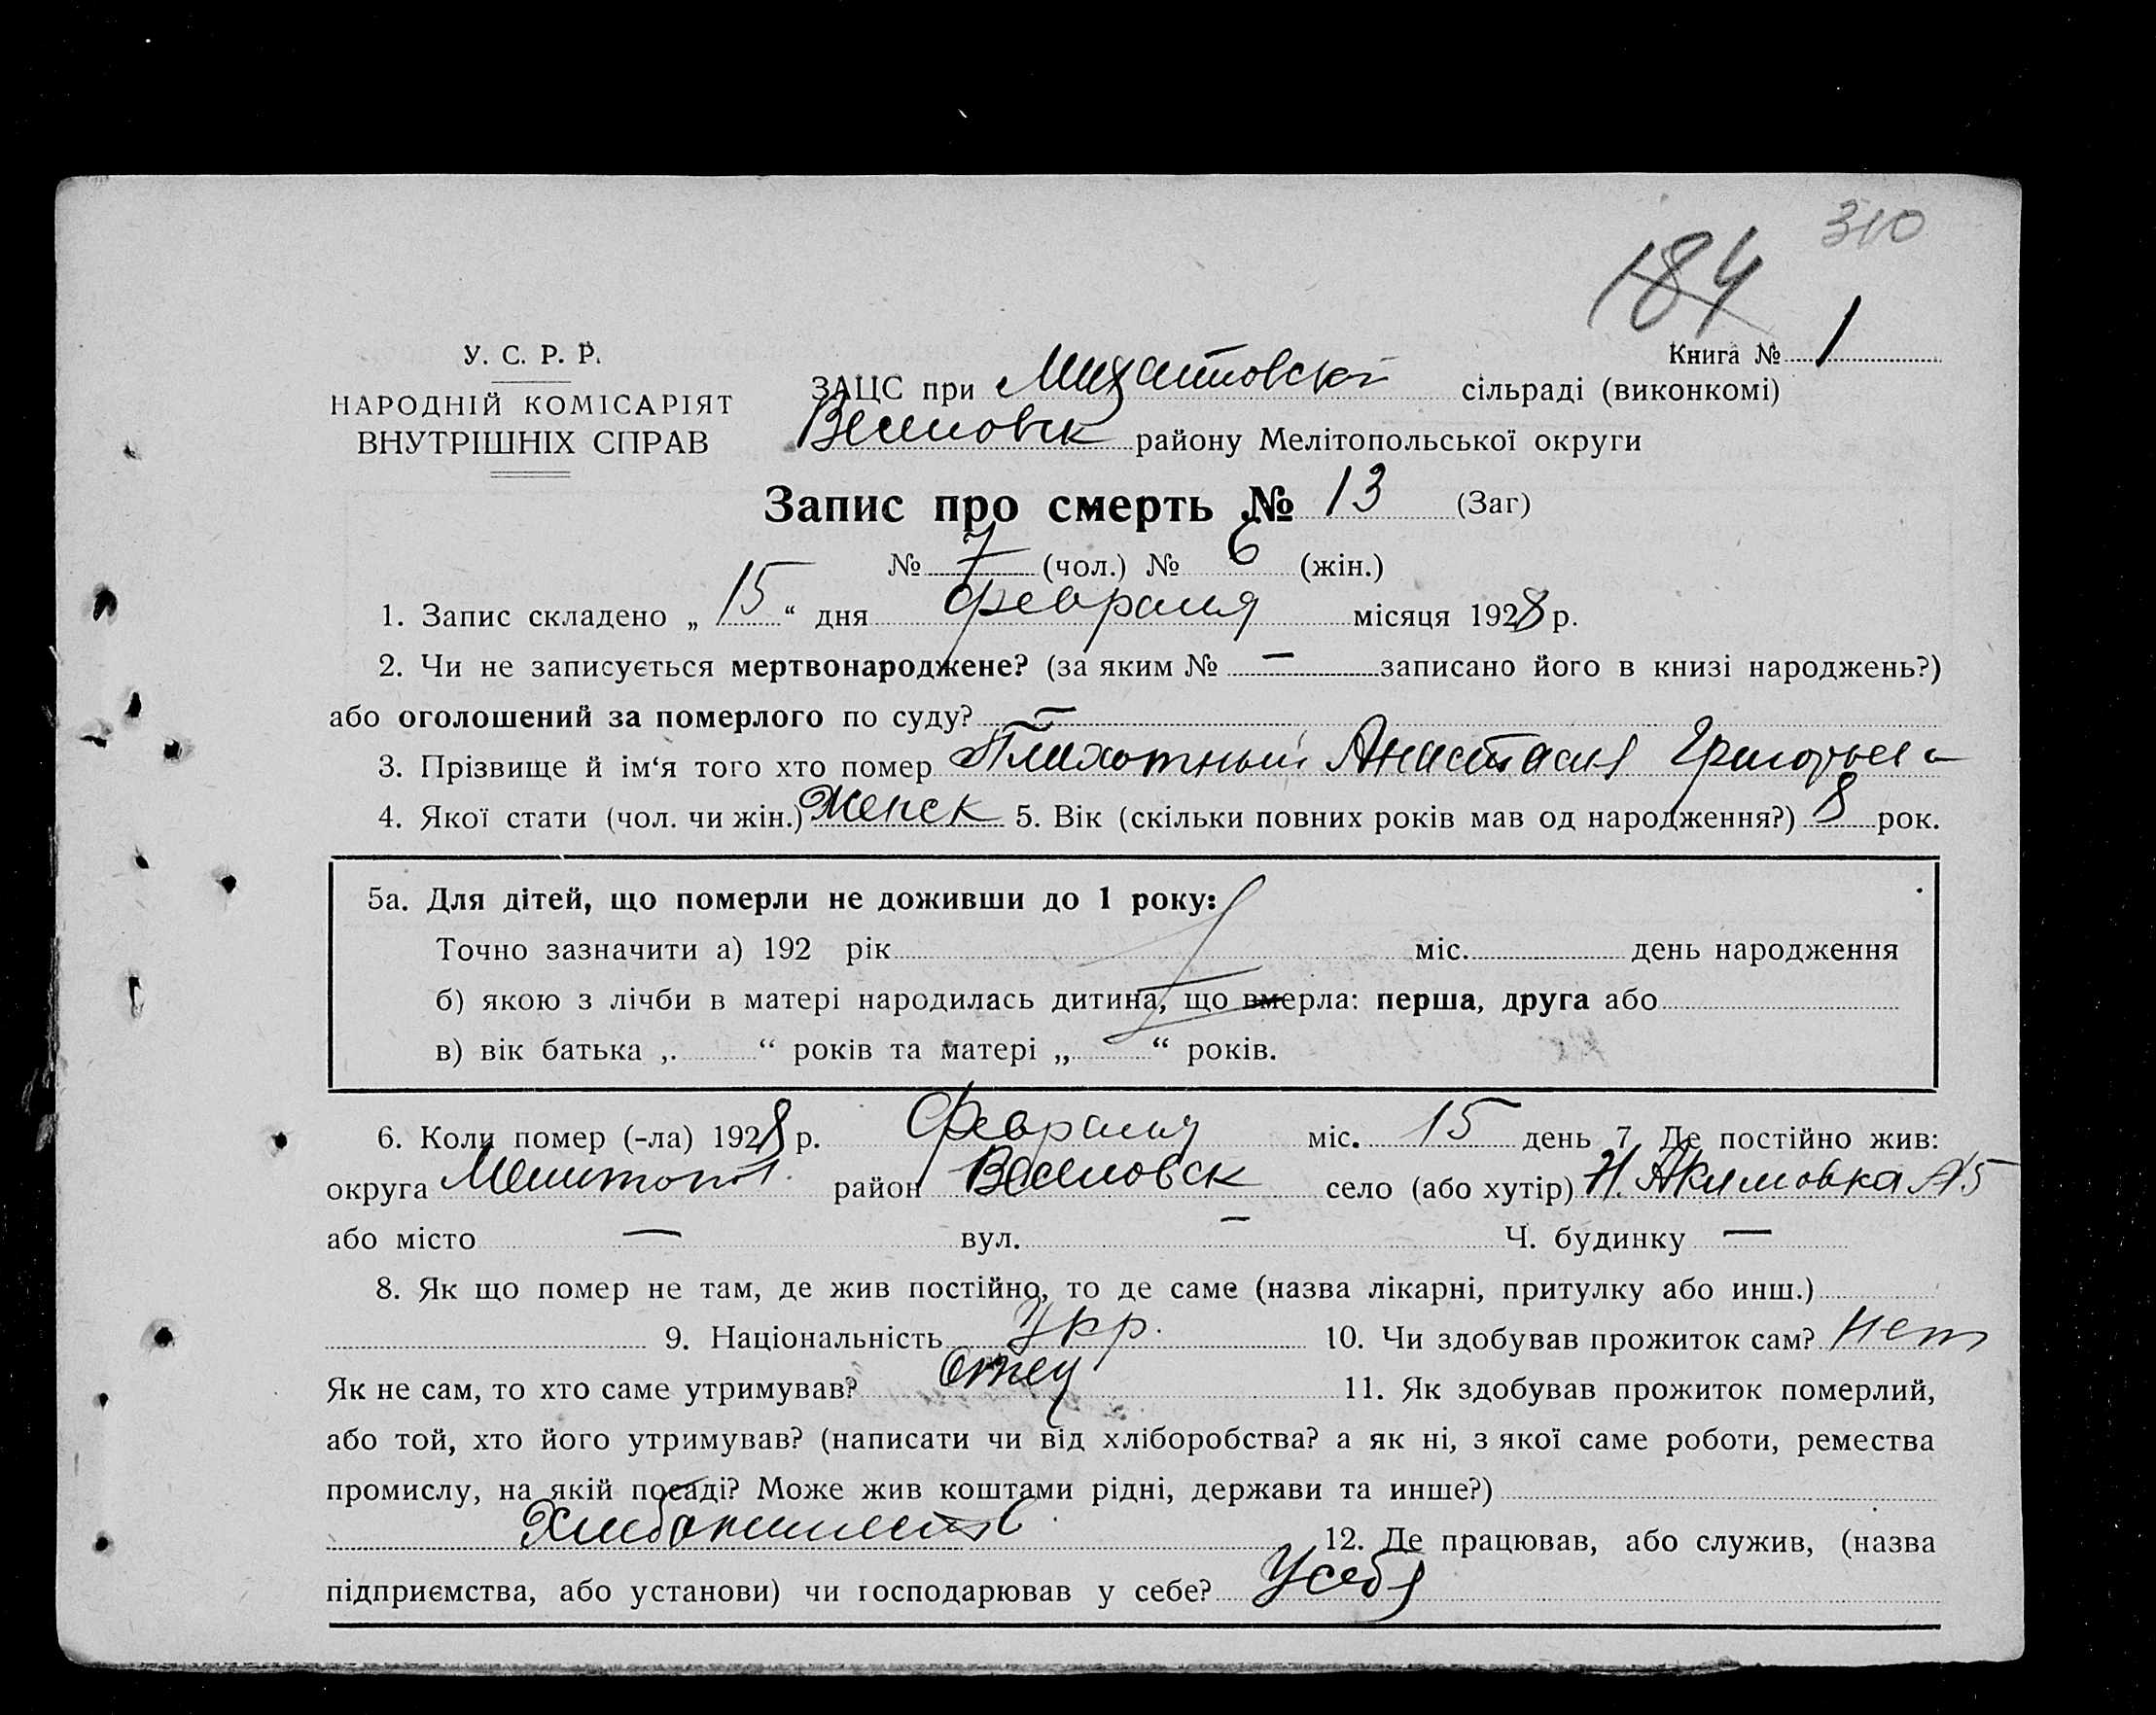 310
184
У. С. Р. Р.
Книга № 1
НАРОДНІЙ КОМІСАРІЯТ
ВНУТРІШНІХ СПРАВ
ЗАЦС при Михайловскій сільраді (виконкомі)
Веселовск району Мелітопольської округи
Запис про смерть № 13 (Заг)
№ 7 (чол.) № 6 (жін.)
1. Запис складено „ 15 “ дня февраля місяця 1928 р.
2. Чи не записується мертвонароджене? (за яким № — записано його в книзі народжень?)
або оголошений за померлого по суду? —
3. Прізвище й ім‘я того хто помер Анастасия Григорьева
4. Якої стати (чол. чи жін.) Женск 5. Вік (скільки повних років мав од народження?) 8 рок.
5а. Для дітей, що померли не доживши до 1 року:
Точно зазначити а) 192 рік міс. день народження
б) якою з лічби в матері народилась дитина, що вмерла: перша, друга або
в) вік батька „ “ років та матері „ “ років.
6. Коли помер (-ла) 1928 р. февраля міс. 15 день 7. Де постійно жив:
округа Мелитопол. район Веселовск село (або хутір) Н. Акимовка №5
або місто — вул. — Ч. будинку —
8. Як що помер не там, де жив постійно, то де саме (назва лікарні, притулку або инш.)
9. Національність Укр. 10. Чи здобував прожиток сам? Нет
Як не сам, то хто саме утримував? Отец 11. Як здобував прожиток померлий,
або той, хто його утримував? (написати чи від хліборобства? а як ні, з якої саме роботи, ремества
промислу, на якій посаді? Може жив коштами рідні, держави та инше?)
12. Де працював, або служив, (назва
підприємства, або установи) чи господарював у себе? У себя